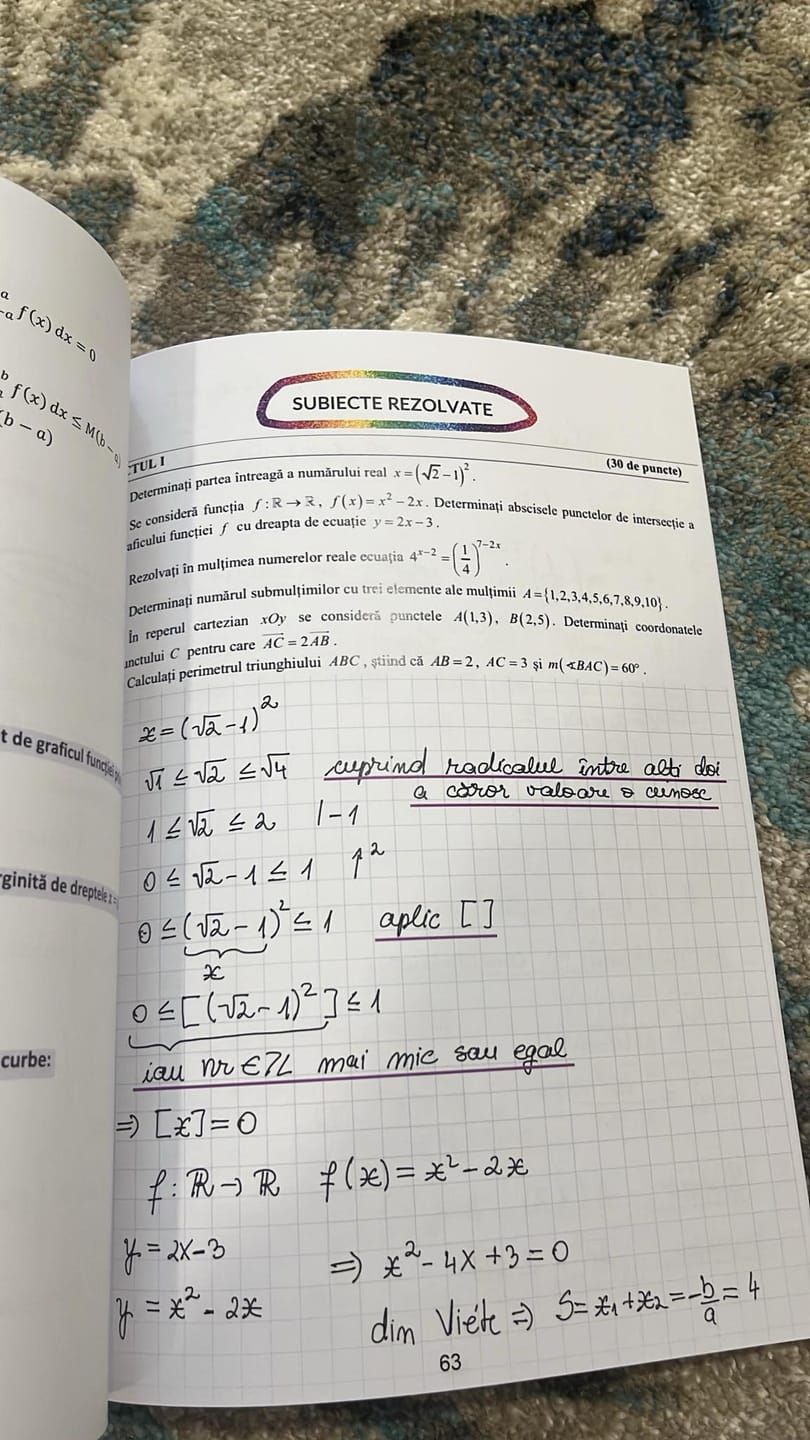 a
-a f(x) dx = 0
b
f(x) dx ≤ M(b - a)
(b - a)
SUBIECTE REZOLVATE
CTUL I (30 de puncte)
Determinați partea întreagă a numărului real x = (√2 − 1)².
Se consideră funcția f : ℝ → ℝ, f(x) = x² − 2x. Determinați abscisele punctelor de intersecție a
aficului funcției f cu dreapta de ecuație y = 2x − 3.
Rezolvați în mulțimea numerelor reale ecuația 4^(x−2) = (1/4)^(7−2x).
Determinați numărul submulțimilor cu trei elemente ale mulțimii A = {1,2,3,4,5,6,7,8,9,10}.
În reperul cartezian xOy se consideră punctele A(1,3), B(2,5). Determinați coordonatele
unctului C pentru care AC = 2AB.
Calculați perimetrul triunghiului ABC, știind că AB = 2, AC = 3 și m(∢BAC) = 60°.
x = (√2 − 1)²
√1 ≤ √2 ≤ √4 cuprind radicalul între alți doi
a căror valoare o cunosc
1 ≤ √2 ≤ 2 | − 1
0 ≤ √2 − 1 ≤ 1 ↑²
0 ≤ (√2 − 1)² ≤ 1 aplic [ ]
x
0 ≤ [(√2 − 1)²] ≤ 1
iau nr ∈ ℤ mai mic sau egal
⇒ [x] = 0
f : ℝ → ℝ f(x) = x² − 2x
y = 2x − 3 ⇒ x² − 4x + 3 = 0
y = x² − 2x
din Viète ⇒ S = x₁ + x₂ = −b/a = 4
63
t de graficul funcției
rginită de dreptele x =
curbe: